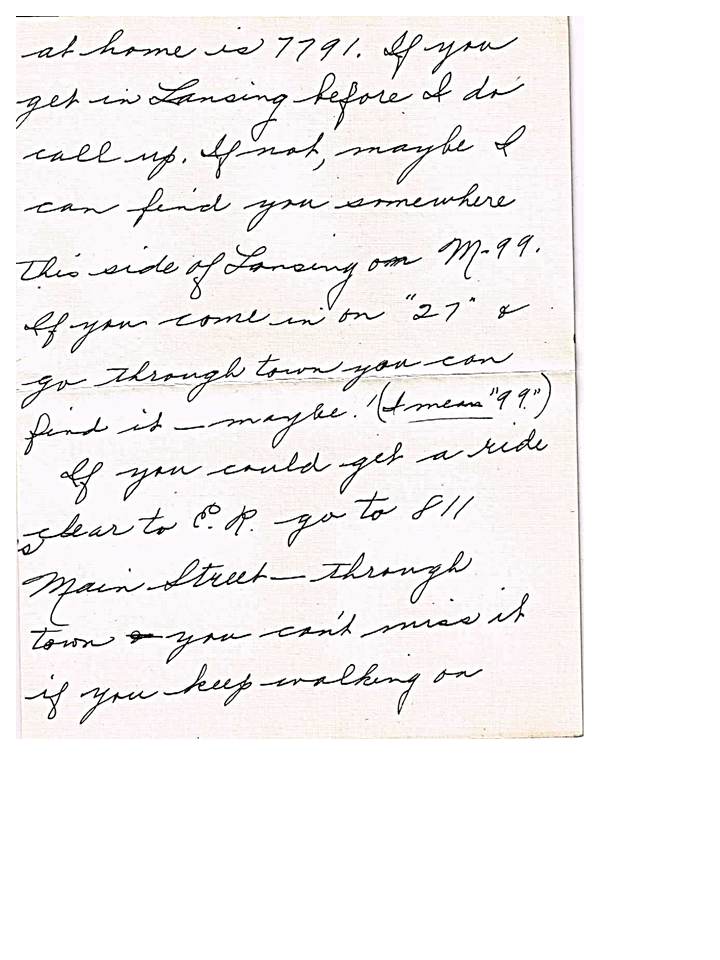 at home is 7791. If you
get in Lansing before I do
call up. If not, maybe I
can find you somewhere
this side of Lansing on M-99.
If you come in on "27" &
go through town you can
find it — maybe! (I mean "99")
If you could get a ride
clear to E. R. go to 811
Main Street — through
town you can't miss it
if you keep walking on